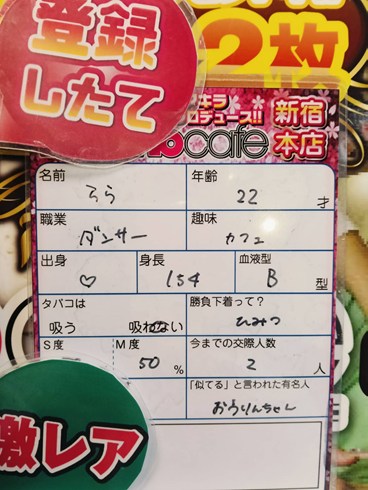 登録
したて
2枚
キラ
ロデュース!!
cafe
新宿
本店
名前
らら
年齢
22
才
職業
ダンサー
趣味
カフェ
出身
♡
身長
154
血液型
B
型
タバコは
吸う
吸わない
勝負下着って?
ひみつ
S度
M度
50
%
今までの交際人数
2
人
「似てる」と言われた有名人
おうりんちゃん
激レア